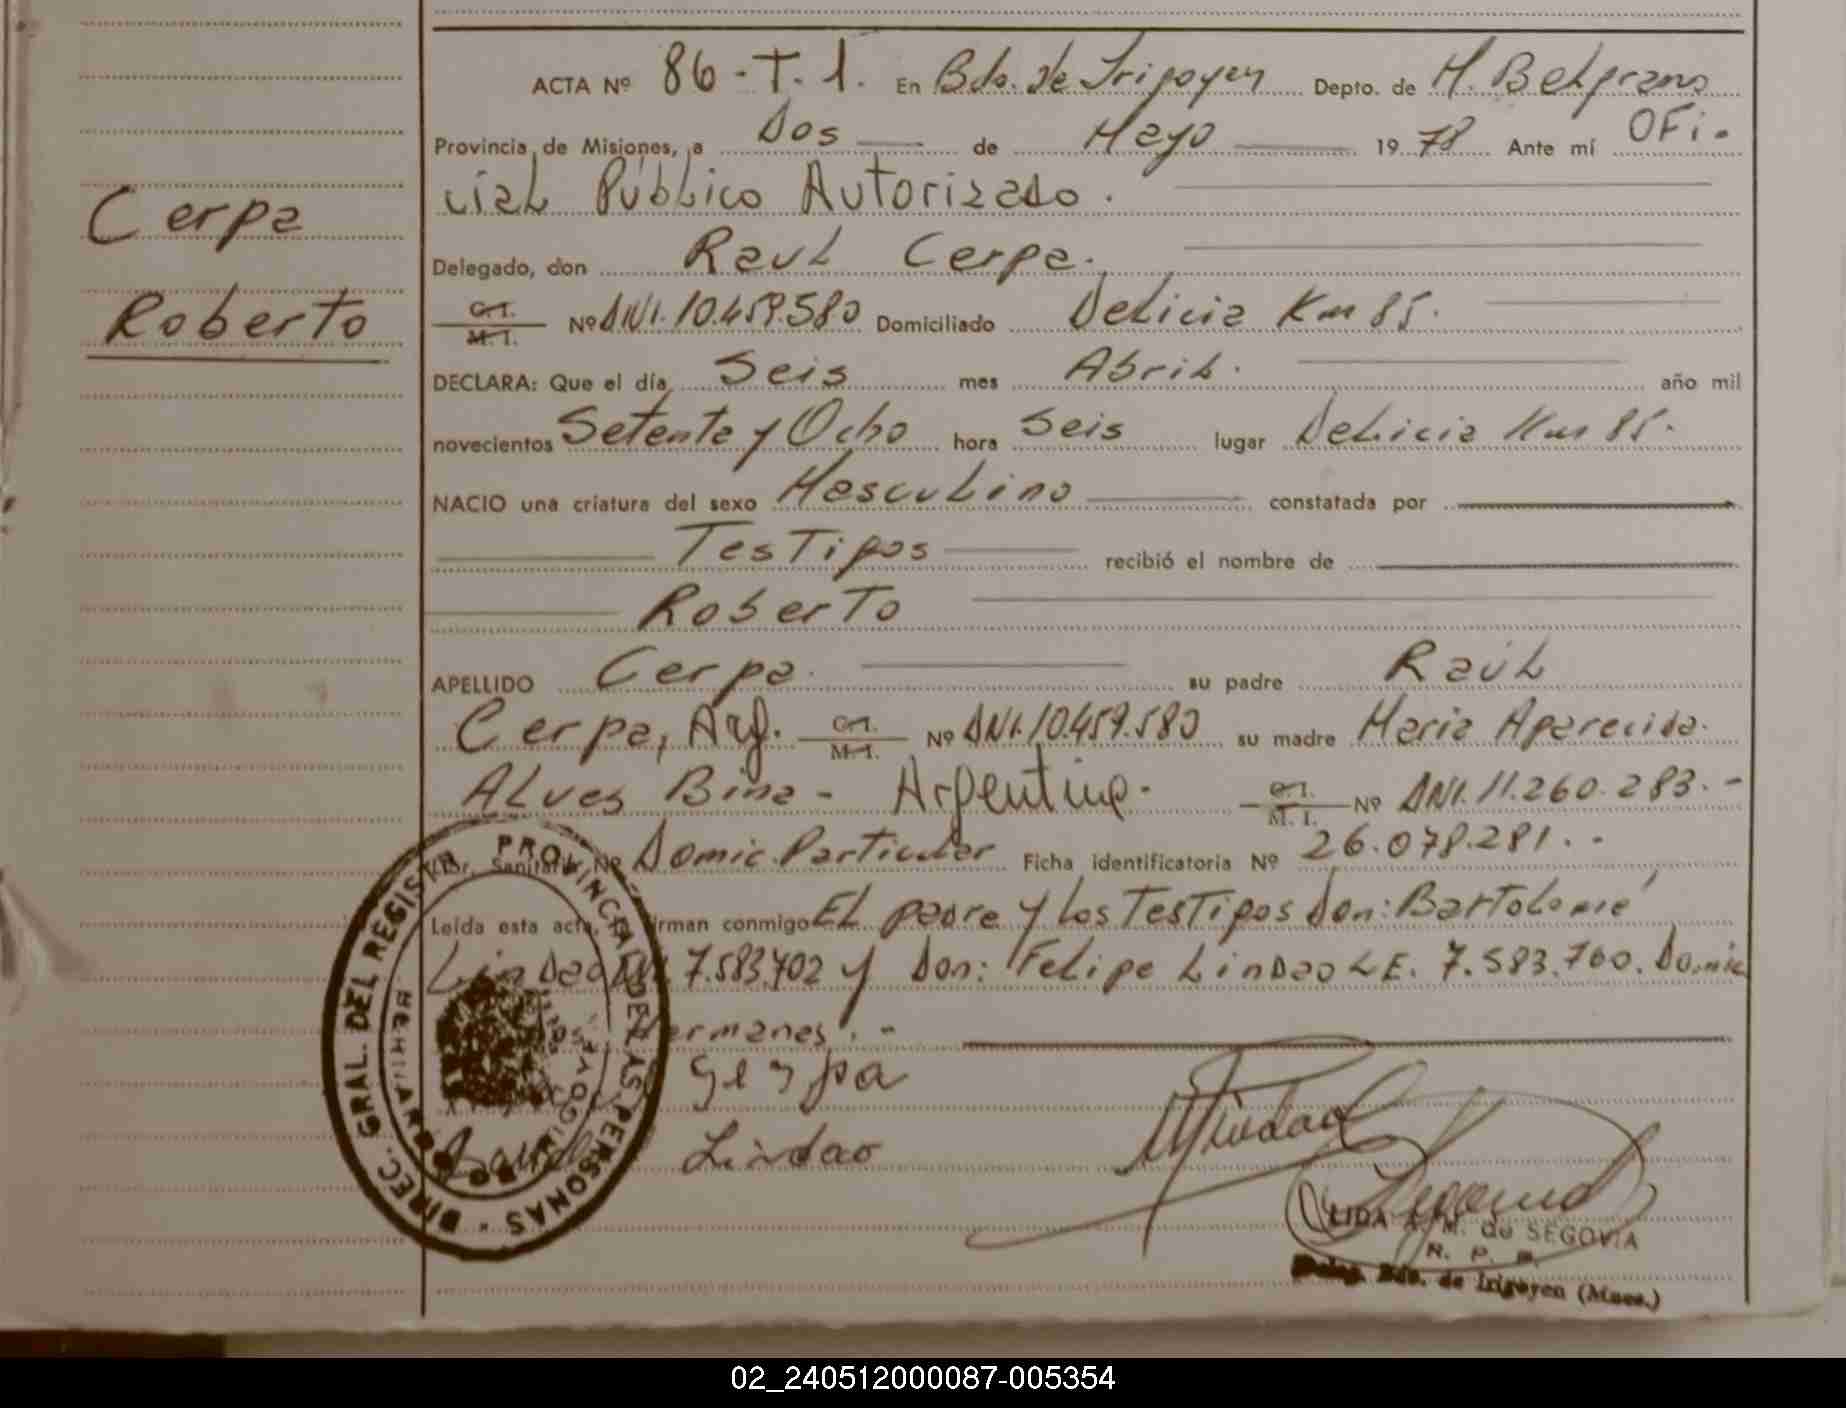 ACTA Nº 86-T.1. En Bdo. de Irigoyen Depto. de M. Belgrano
Provincia de Misiones, a Dos de Mayo 1978 Ante mí OFi-
cial Público Autorizado.
Cerpa
Delegado, don Raul Cerpa.
Roberto
C.I.
M.I. Nº DNI. 10.459.580 Domiciliado Delicia Km 85.
DECLARA: Que el día Seis mes Abril. año mil
novecientos Setenta y Ocho hora Seis lugar Delicia Km 85.
NACIO una criatura del sexo Masculino constatada por
Testigos recibió el nombre de
Roberto
APELLIDO Cerpa. su padre Raúl
Cerpa, Arg. C.I. M.I. Nº DNI. 10.459.580 su madre Maria Aparecida.
Alves Bina - Argentina. C.I. M.I. Nº DNI. 11.260.283.-
Sanitaria Nº Domic. Particular Ficha identificatoria Nº 26.078.281.-
Leída esta acta, firman conmigo El padre y los Testigos Don: Bartolomé
Lindao DNI. 7.583.702 y Don: Felipe Lindao L.E. 7.583.760. Domic
Hermanas.-
Cerpa
Lindao
DIREC. GRAL. DEL REGISTRO PROVINCIAL DE LAS PERSONAS
BERNARDO DE IRIGOYEN
LIDA A. M. de SEGOVIA
R. P. P.
Deleg. Bdo. de Irigoyen (Mnes.)
02_240512000087-005354